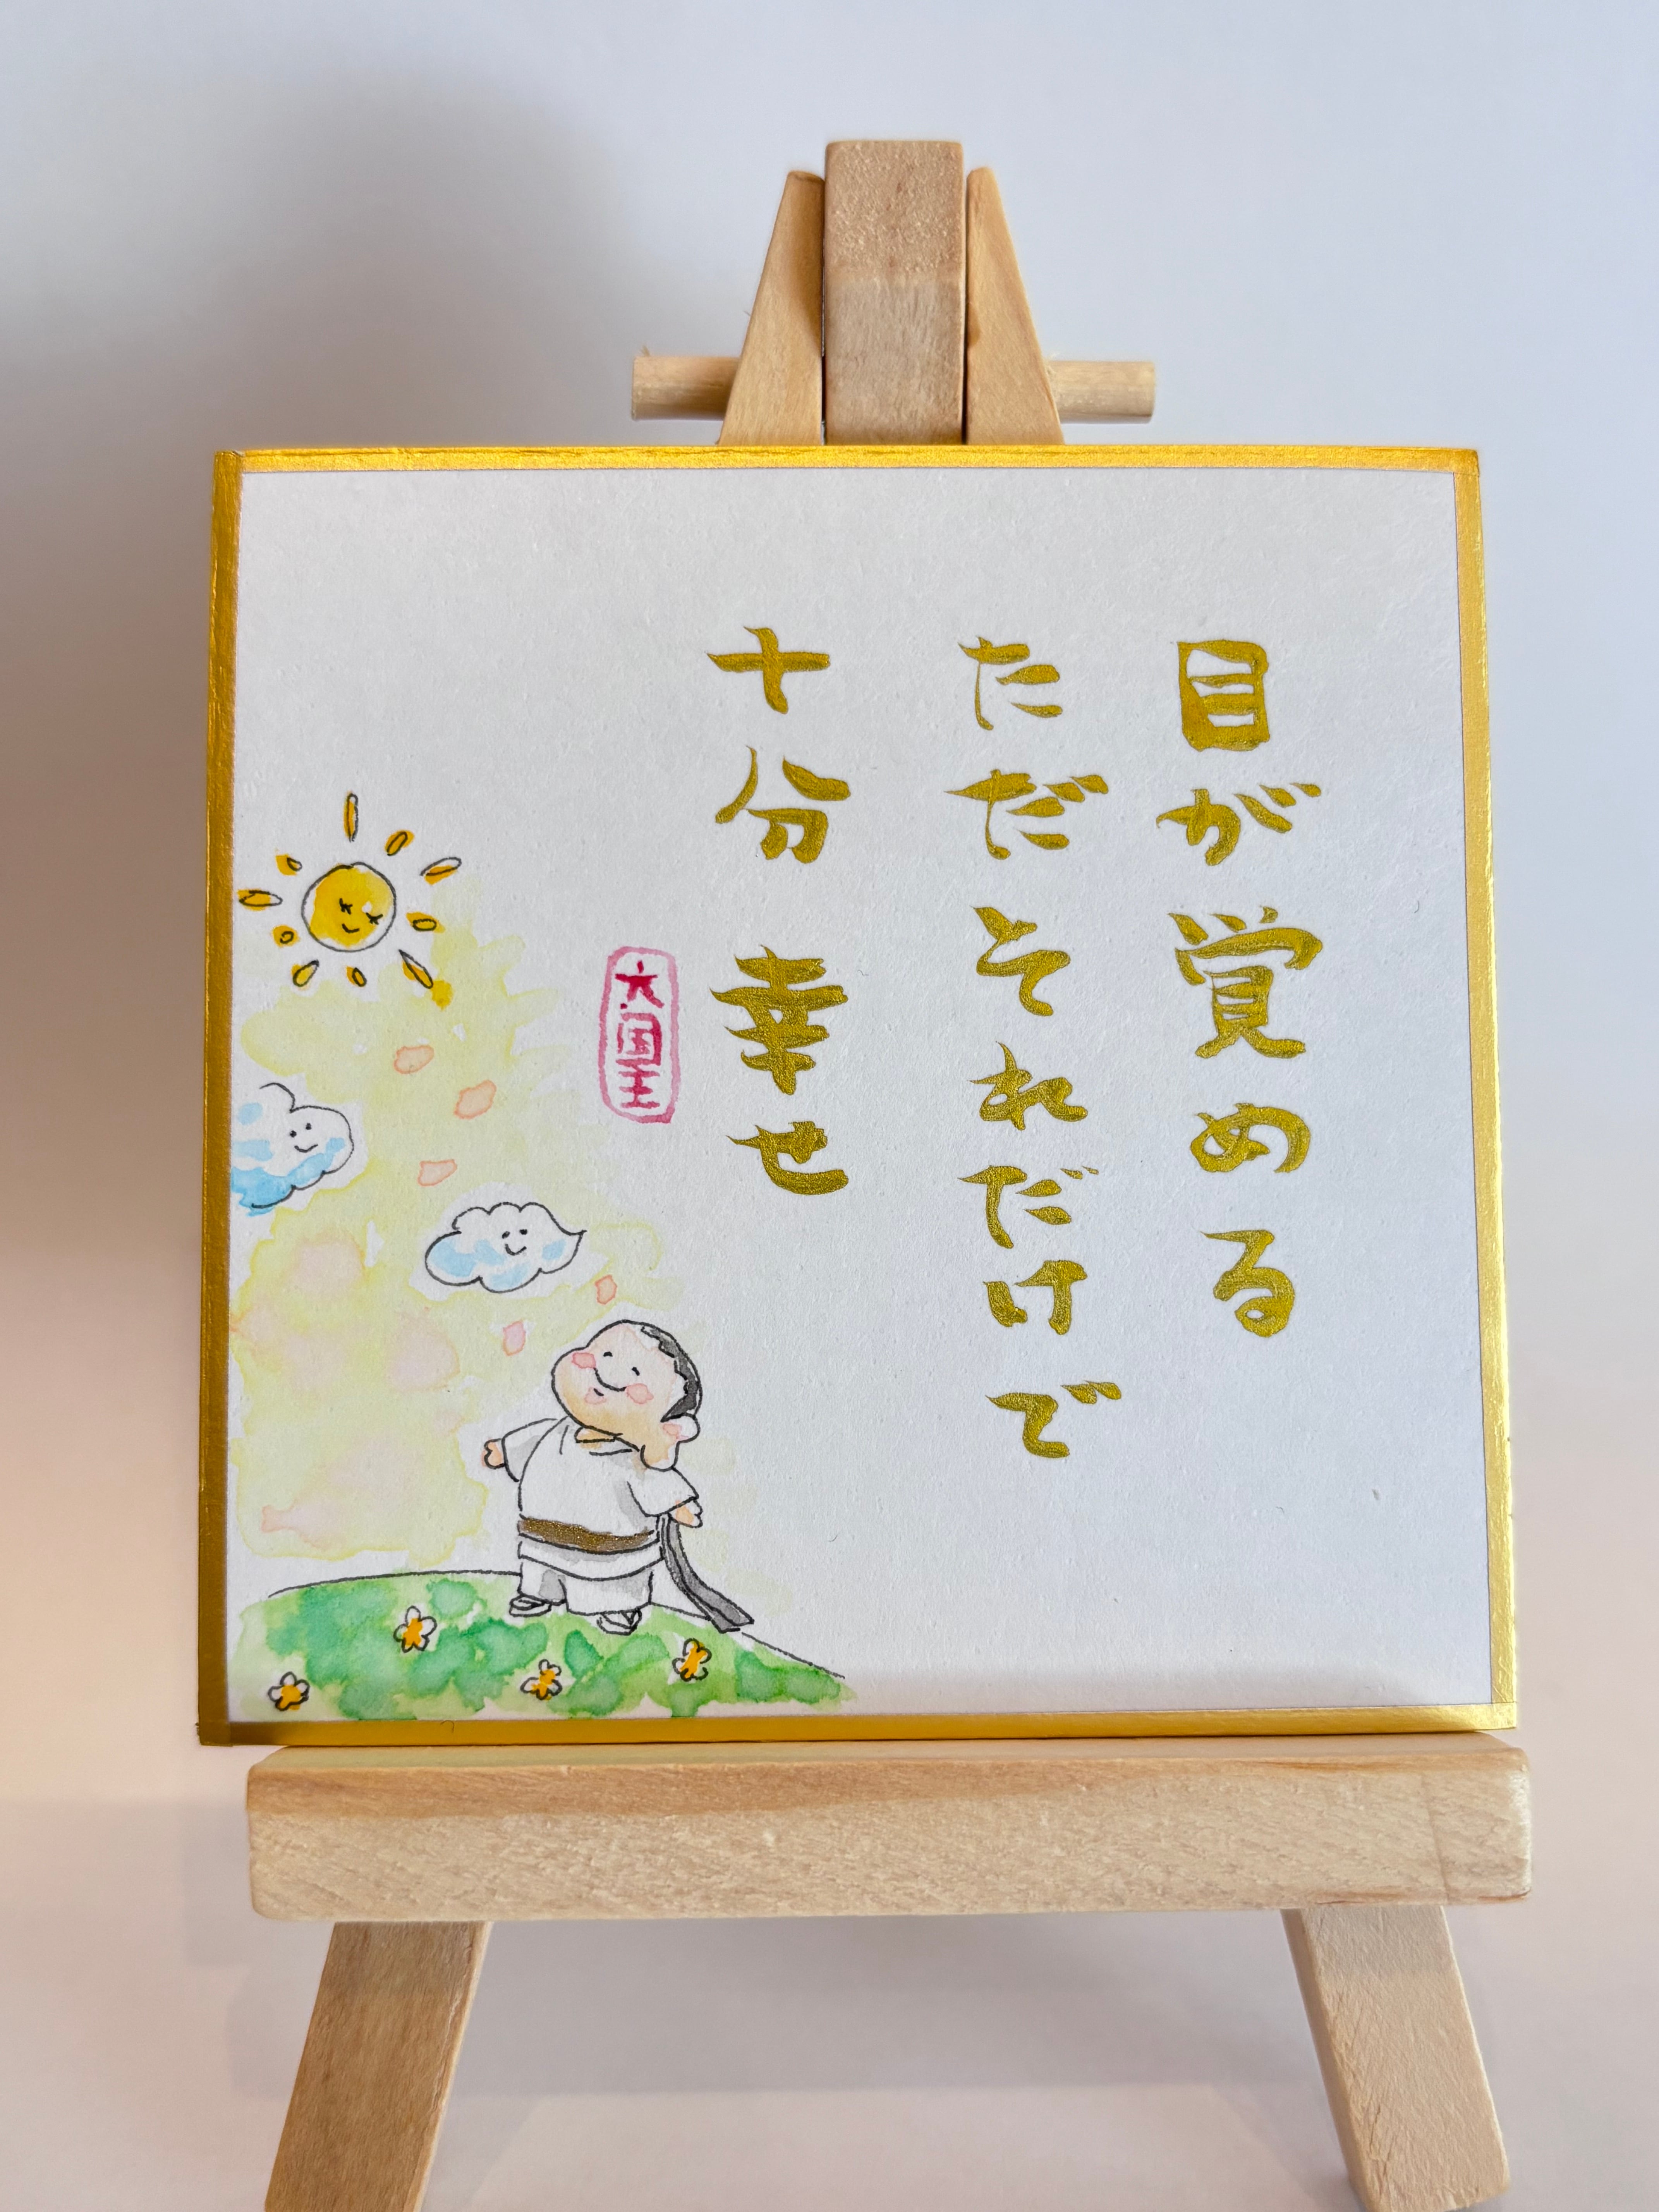 目が覚める
ただそれだけで
十分 幸せ
大国王